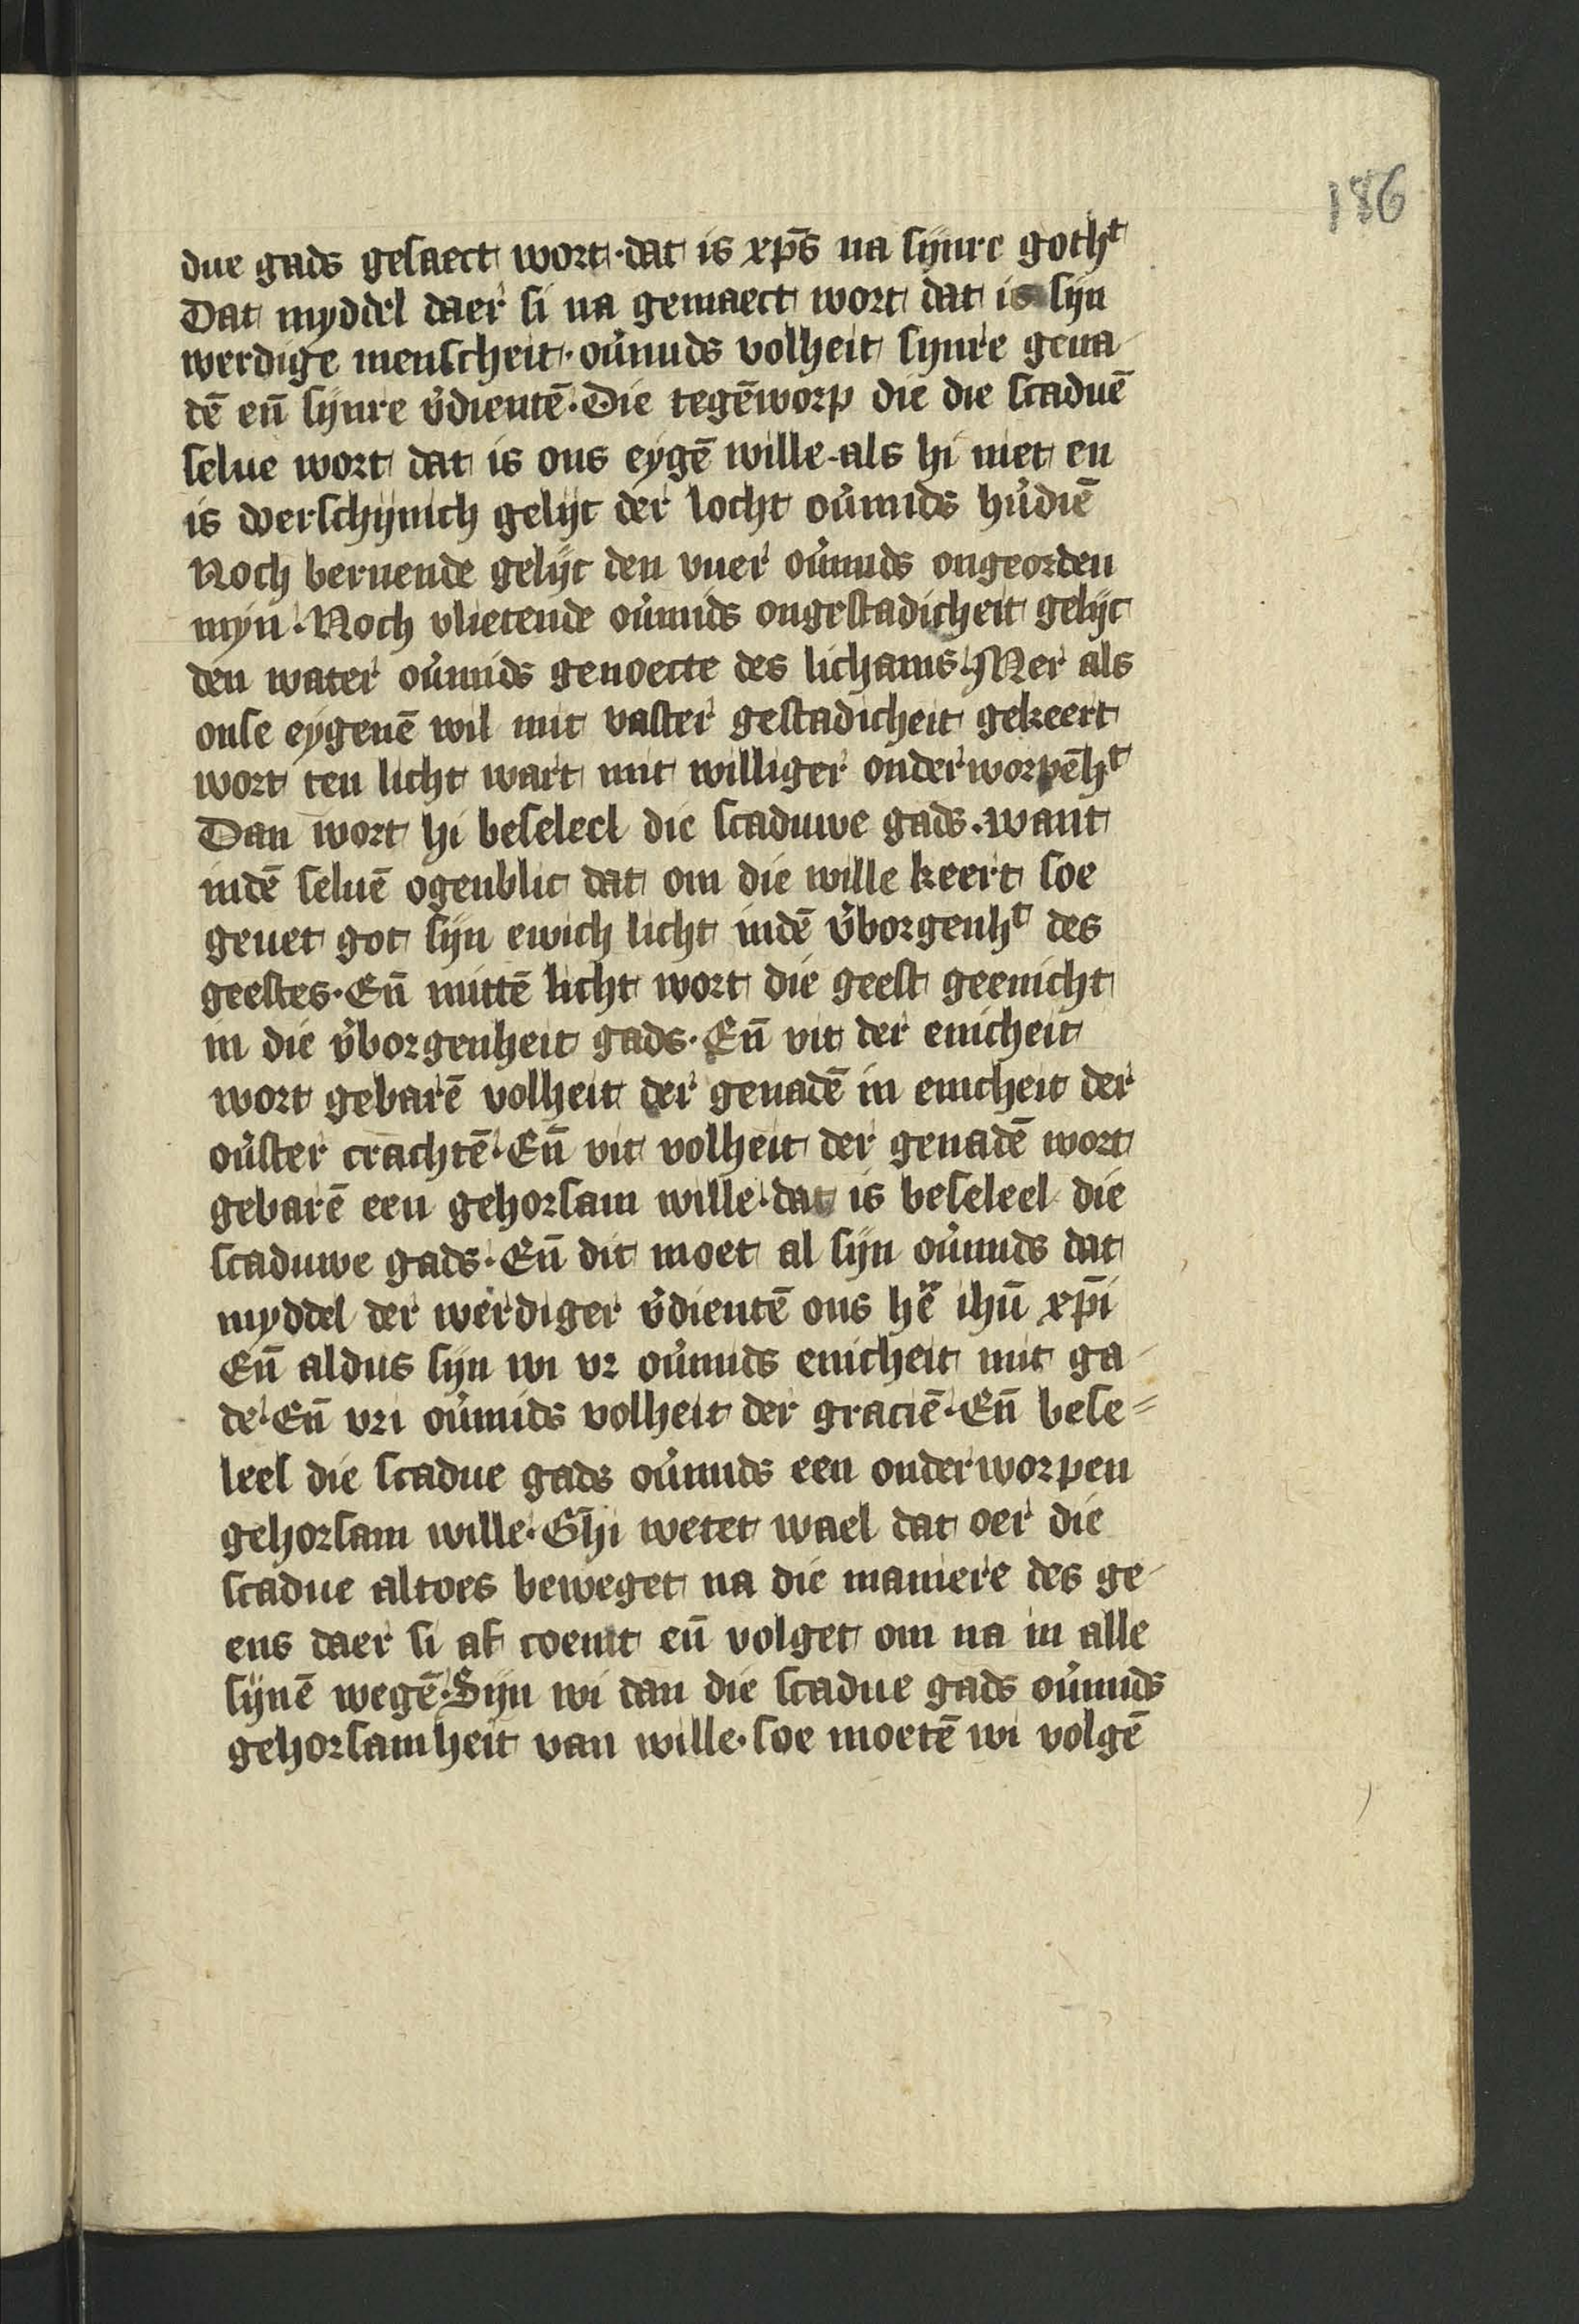 186
due gads gesaect wort · dat is xp̄s na sijnre gothᵗ
Dat myddel daer si na gemaect wort dat is sijn
werdige menscheit · ou̓mids volheit synre gena-
dē en̄ sijnre v̓dientē · Die tegēworp die die scaduē
selue wort dat is ons eygē wille · als hi niet en
is doerschijnich gelijc der locht ou̓mids hu̓diē
Noch bernende gelijc den vuer ou̓mids ongeorden
myn · Noch vlietende ou̓mids ongestadicheit gelijc
den water ou̓mids genoecte des lichams · Mer als
onse eygenē wil mit vaster gestadicheit gekeert
wort ten licht wart mit williger onderworpēhᵗ
Dan wort hi beseleel die scaduwe gads · want
indē seluē ogenblic dat om die wille keert soe
geuet got sijn ewich licht indē v̓borgenhᵗ des
geestes · En̄ mittē licht wort die geest geenicht
in die v̓borgenheit gads · En̄ vit der enicheit
wort gebarē volheit der genadē in enicheit der
ou̓ster crachtē · En̄ vit volheit der genadē wort
gebarē een gehorsam wille · dat is beseleel die
scaduwe gads · En̄ dit moet al sijn ou̓mids dat
myddel der werdiger v̓dientē ons hē ihū xp̄i
En̄ aldus sijn wi vr ou̓mids enicheit mit ga-
de · En̄ vri ou̓mids volheit der graciē · En̄ bese=
leel die scadue gads ou̓mids een onderworpen
gehorsam wille · Ghi wetet wael dat oer die
scadue altoes beweget na die maniere des ge-
ens daer si af coemt en̄ volget om na in alle
sijnē wegē · Sijn wi dan die scadue gads ou̓mids
gehorsamheit van wille · soe moetē wi volgē